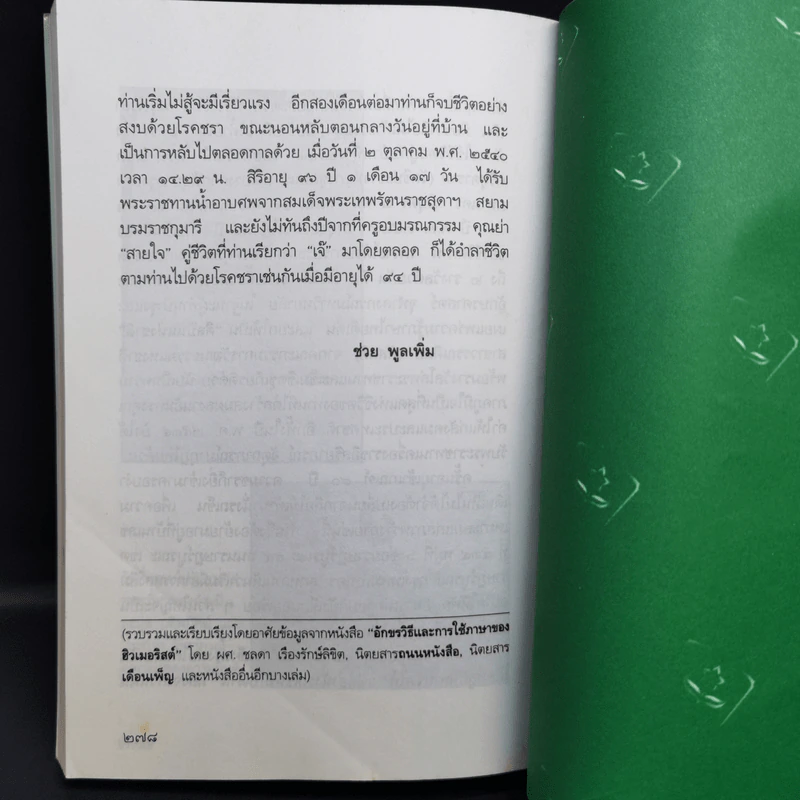 ท่านเริ่มไม่สู้จะมีเรี่ยวแรง อีกสองเดือนต่อมาท่านก็จบชีวิตอย่าง
สงบด้วยโรคชรา ขณะนอนหลับตอนกลางวันอยู่ที่บ้าน และ
เป็นการหลับไปตลอดกาลด้วย เมื่อวันที่ ๒ ตุลาคม พ.ศ. ๒๕๔๐
เวลา ๑๔.๒๙ น. สิริอายุ ๙๖ ปี ๑ เดือน ๑๗ วัน ได้รับ
พระราชทานน้ำอาบศพจากสมเด็จพระเทพรัตนราชสุดาฯ สยาม
บรมราชกุมารี และยังไม่ทันถึงปีจากที่ครูอบมรณกรรม คุณย่า
“สายใจ” คู่ชีวิตที่ท่านเรียกว่า “เจ๊” มาโดยตลอด ก็ได้อำลาชีวิต
ตามท่านไปด้วยโรคชราเช่นกันเมื่อมีอายุได้ ๙๔ ปี
ช่วย พูลเพิ่ม
(รวบรวมและเรียบเรียงโดยอาศัยข้อมูลจากหนังสือ “อักขรวิธีและการใช้ภาษาของ
ฮิวเมอริสต์” โดย ผศ. ชลดา เรืองรักษ์ลิขิต, นิตยสารถนนหนังสือ, นิตยสาร
เดือนเพ็ญ และหนังสืออื่นอีกบางเล่ม)
๒๗๘